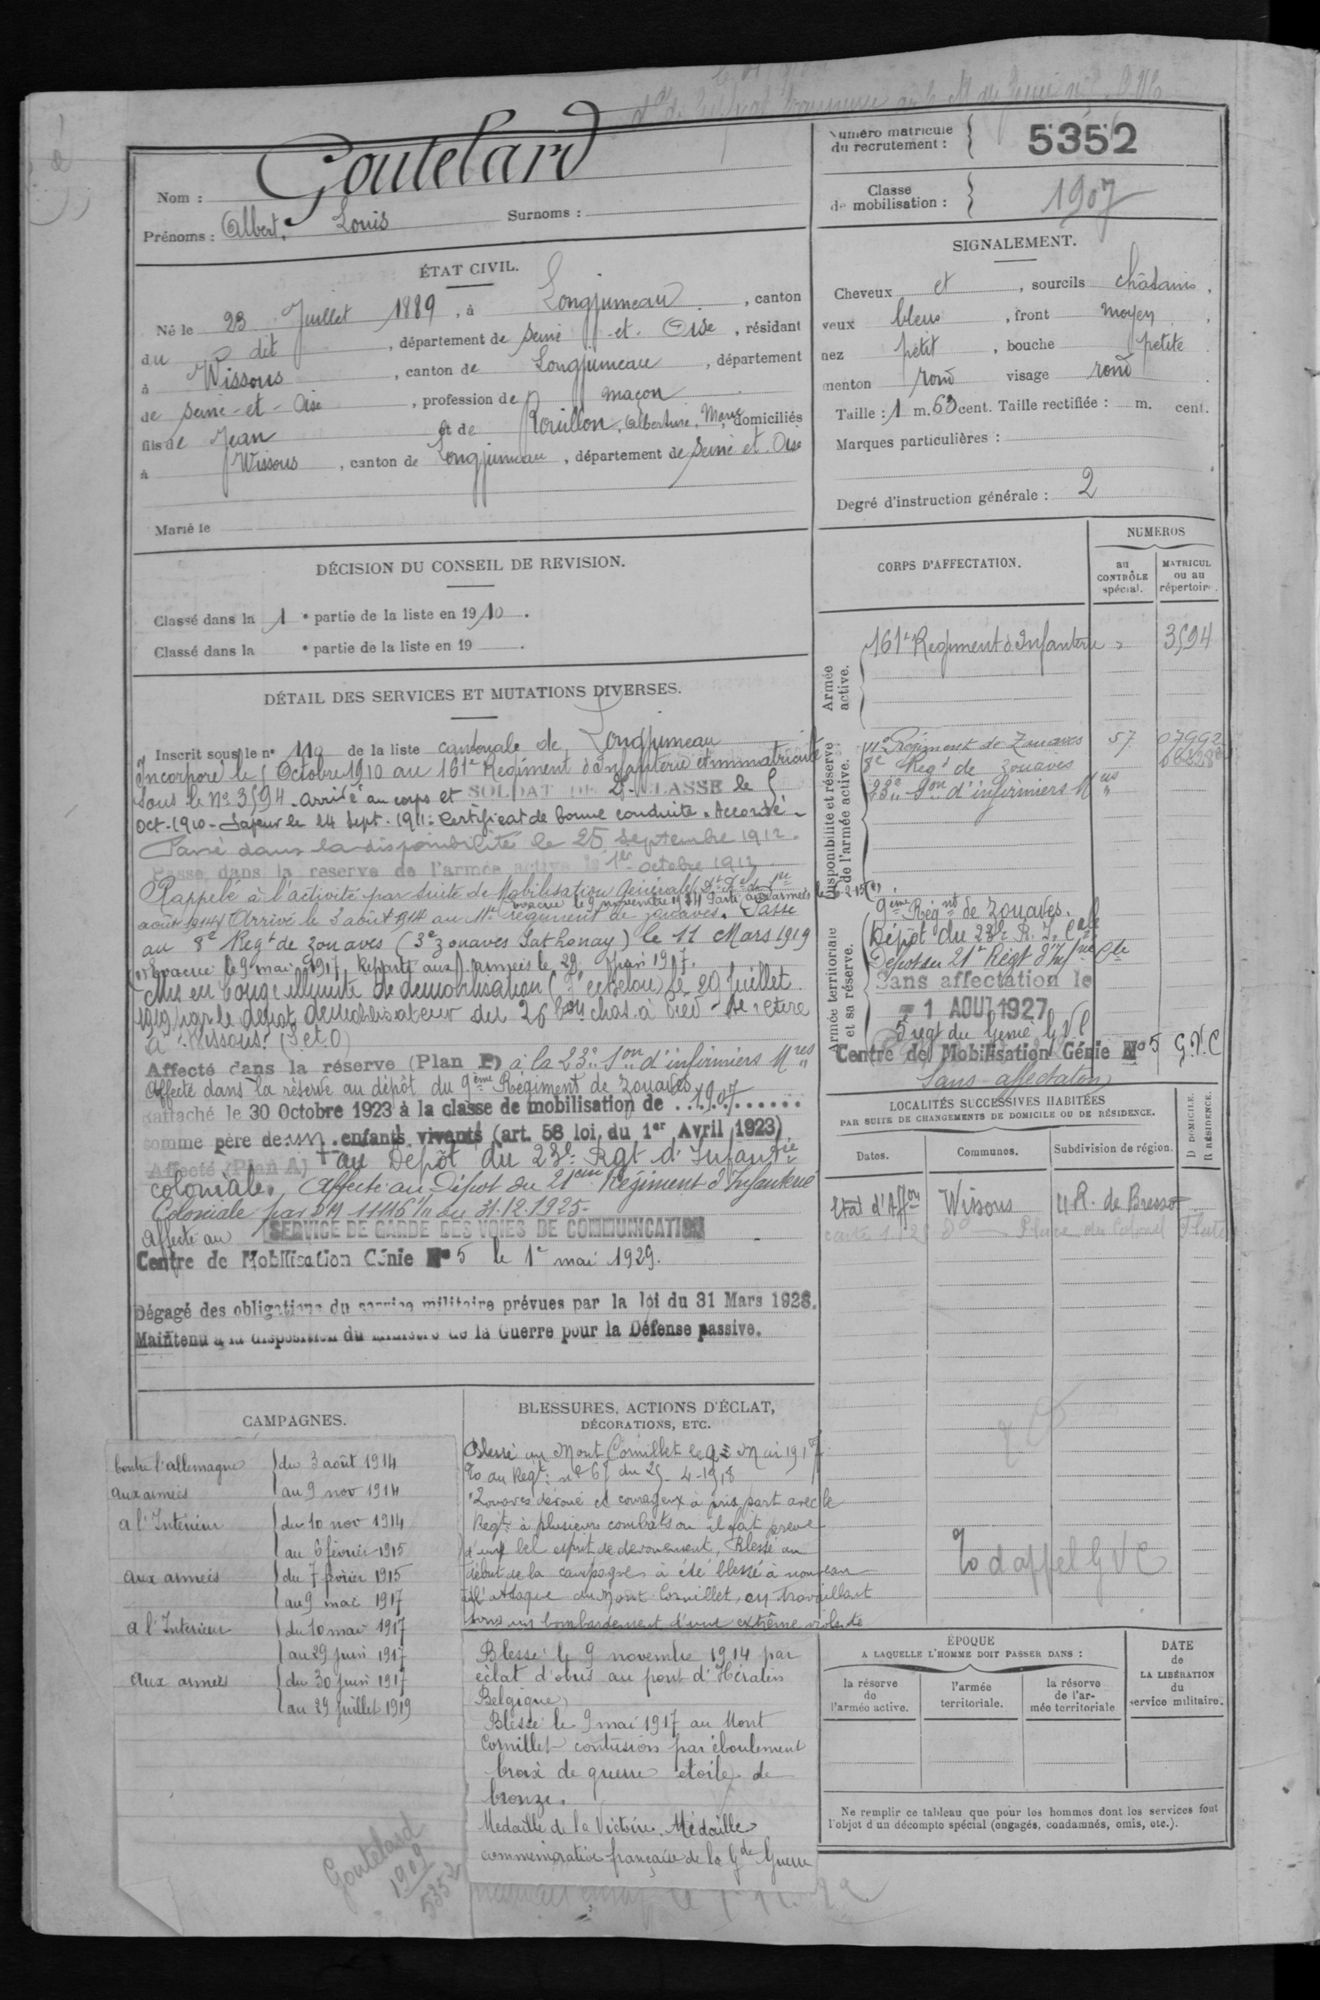 Numéro matricule
du recrutement : 5352
Classe
de mobilisation : 1907
Nom : Goutelard
Prénoms : Albert, Louis Surnoms :
ÉTAT CIVIL.
Né le 23 Juillet 1889, à Longjumeau, canton
du dit, département de Seine et Oise, résidant
à Wissous, canton de Longjumeau, département
de Seine-et-Oise, profession de maçon
fils de Jean et de Rouillon, Albertine, Marie domiciliés
à Wissous, canton de Longjumeau, département de Seine et Oise
Marié le
SIGNALEMENT.
Cheveux et, sourcils châtains,
yeux bleus, front moyen,
nez petit, bouche petite
menton rond visage rond
Taille : 1 m. 63 cent. Taille rectifiée : m. cent.
Marques particulières :
Degré d'instruction générale : 2
DÉCISION DU CONSEIL DE REVISION.
Classé dans la 1 e partie de la liste en 1910.
Classé dans la e partie de la liste en 19 .
DÉTAIL DES SERVICES ET MUTATIONS DIVERSES.
Inscrit sous le n° 119 de la liste cantonale de Longjumeau
Incorporé le 5 Octobre 1910 au 161e Régiment d'Infanterie et immatriculé
sous le No 3594. arrivé au corps et SOLDAT DE 2e CLASSE le 5
Oct. 1910 - Sapeur le 24 Sept. 1911. Certificat de bonne conduite. Accordé.
Passé dans la disponibilité le 25 septembre 1912.
Passé dans la réserve de l'armée active le 1er octobre 1912
Rappelé à l'activité par suite de Mobilisation Générale
évacué le 9 novembre 1914 Parti aux armées le 6-2-15
août 1914 Arrivé le 3 août 1914 au 11e régiment de zouaves. Passé
au 8e Regt de Zouaves (3e zouaves Sathonay) le 11 Mars 1919
Evacué le 9 mai 1917. Reparti aux armées le 29 Juin 1917.
Mis en congé illimité de démobilisation (7e échelon) le 29 juillet
1919 par le dépôt démobilisateur du 26 bon chas. à pied - Se retire
à Wissous. (S et O)
Affecté dans la réserve (Plan P) à la 23e Son d'infirmiers Mres
Affecté dans la réserve au dépôt du 9ème Régiment de Zouaves
Rattaché le 30 Octobre 1923 à la classe de mobilisation de 1907
comme père de un enfants vivants (art. 58 loi du 1er Avril 1923)
Affecté (Plan A) au Dépôt du 23e Rgt d'Infanterie
coloniale. Affecté au Dépôt du 21ème Régiment d'Infanterie
Coloniale par DM 11116 du 31.12.1925.
Affecté au SERVICE DE GARDE DES VOIES DE COMMUNICATION
Centre de Mobilisation Génie No 5 le 1er mai 1929.
Dégagé des obligations du service militaire prévues par la loi du 31 Mars 1928.
Maintenu à la disposition du Ministre de la Guerre pour la Défense passive.
CORPS D'AFFECTATION.
NUMÉROS
au CONTRÔLE spécial.
MATRICULE ou au répertoire.
Armée active.
161e Régiment d'Infanterie » 3594
Disponibilité et réserve de l'armée active.
11e Régiment de Zouaves 57 07992
8e Regt de Zouaves
23e Son d'infirmiers Mres
Armée territoriale et sa réserve.
9ème Régnt de Zouaves.
Dépôt du 23e R. I. Cale
Dépôt du 21e Régt d'Infrie Cle
Sans affectation le
1 AOUT 1927
5 regt du Génie G V C
Centre de Mobilisation Génie No 5 G.V.C
Sans affectation
LOCALITÉS SUCCESSIVES HABITÉES
PAR SUITE DE CHANGEMENTS DE DOMICILE OU DE RÉSIDENCE.
D DOMICILE. R RÉSIDENCE.
Dates. Communes. Subdivision de région.
Etat d'Affon Wissous 4 R. de Bresso
Place du Colonel
% d'appel G V C
CAMPAGNES.
Contre l'allemagne du 3 août 1914
aux armées au 9 nov 1914
a l'Intérieur du 10 nov 1914
au 6 février 1915
aux armées du 7 février 1915
au 9 mai 1917
a l'Interieur du 10 mai 1917
au 29 juin 1917
aux armées du 30 juin 1917
au 29 juillet 1919
Goutelard
1909
5352
BLESSURES, ACTIONS D'ÉCLAT,
DÉCORATIONS, ETC.
Blessé au Mont Cornillet le 9 Mai 1917
% au Regt: no 67 du 25-4-1918
"Zouave dévoué et courageux à pris part avec le
Regt à plusieurs combats ou il fait preuve
d'un bel esprit de devouement. Blessé au
début de la campagne à été blessé à nouveau
à l'Attaque du Mont Cornillet, en travaillant
sous un bombardement d'une extrême violente
Blessé le 9 novembre 1914 par
éclat d'obus au pont d'Hératin
Belgique
Blessé le 9 mai 1917 au Mont
Cornillet contusions par éboulement
Croix de guerre étoile de
bronze.
Medaille de la Victoire. Médaille
commemorative française de la Gde Guerre
ÉPOQUE
A LAQUELLE L'HOMME DOIT PASSER DANS :
la réserve de l'armée active.
l'armée territoriale.
la réserve de l'armée territoriale
DATE de LA LIBÉRATION du service militaire.
Ne remplir ce tableau que pour les hommes dont les services font
l'objet d'un décompte spécial (engagés, condamnés, omis, etc.).